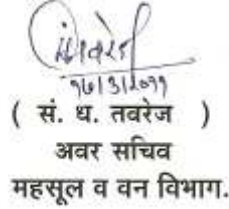 १७/३/२०११
( सं. ध. तवरेज )
अवर सचिव
महसूल व वन विभाग.